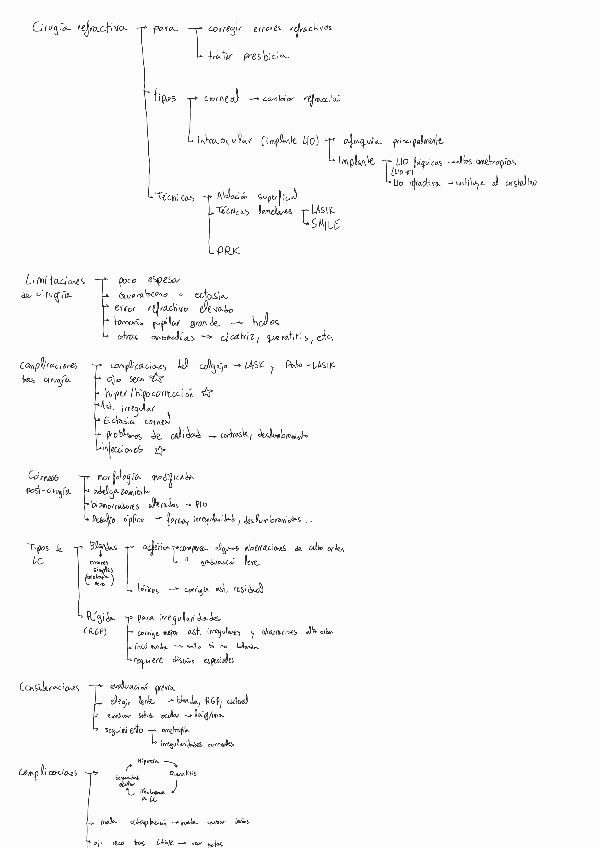 Cirugía refractiva → para → corregir errores refractivos
→ tratar presbicia
→ tipos → corneal → cambiar refracción
→ Intraocular (implante LIO) → afaquia principalmente
→ Implante → LIO fáquicas → altas ametropías
→ LIO refractiva → sustituye al cristalino
→ Técnicas → Ablación superficial
→ Técnicas lamelares → LASIK
→ SMILE
→ PRK
Limitaciones de cirugía → poco espesor
→ queratocono o ectasia
→ error refractivo elevado
→ tamaño pupilar grande → halos
→ otras anomalías → cicatriz, queratitis, etc.
Complicaciones tras cirugía → complicaciones del colgajo → LASIK y
→ ojo seco
→ hiper/hipocorrección
→ Ast. irregular
→ Ectasia corneal
→ problemas de calidad → contraste, deslumbramiento
→ infecciones
Córneas post-cirugía → morfología modificada
→ adelgazamiento
→ biomarcadores alterados → PIO
→ Desafío óptico → forma, irregularidad, deslumbramientos...
Tipos de LC → Blandas → esférica → compensar algunas aberraciones de alto orden
→ " graduación leve
→ tóricas → corrigen ast. residual
→ Rígida (RGP) → para irregularidades
→ corrige mejor ast. irregulares y aberraciones alto orden
→ incómoda →
→ requiere diseños especiales
Consideraciones → evaluación previa
→ elegir lente → blanda, RGP, escleral
→ evaluar salud ocular → lágrima
→ seguimiento → ametropía
→ irregularidades corneales
Complicaciones → Hipoxia → Queratitis
→ mala adaptación →
→ ojo seco tras LASIK →